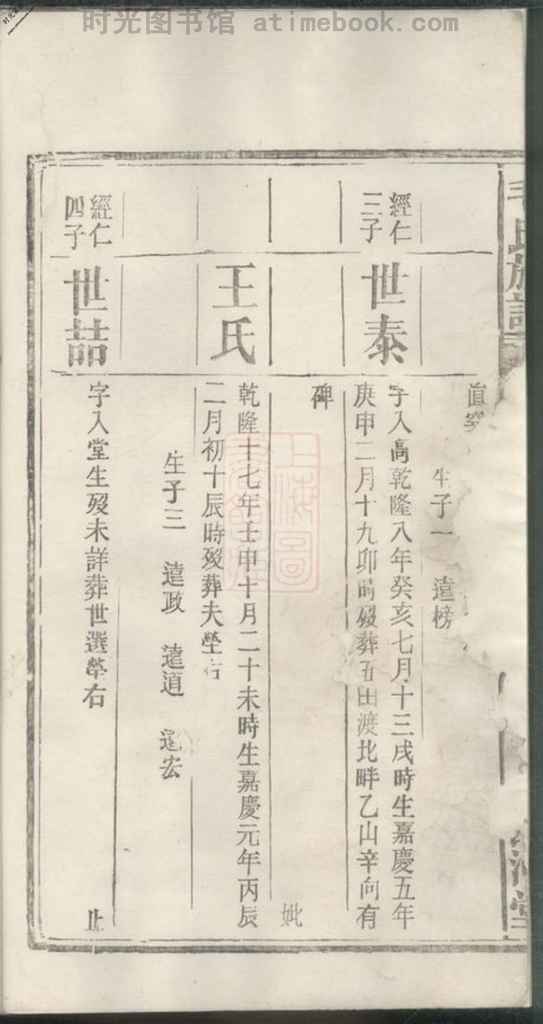 时光图书馆 atimebook.com
毛氏族譜
生子一 遠榜
經仁
三子
世泰
字入高乾隆八年癸亥七月十三戌時生嘉慶五年
庚申二月十九卯時殁葬五田渡北畔乙山辛向有
碑
妣
王氏
乾隆十七年壬申十月二十未時生嘉慶元年丙辰
二月初十辰時殁葬夫塋右
生子三 遠政 遠道 遠宏
經仁
四子
世喆
字入堂生殁未詳葬世選塋右
止